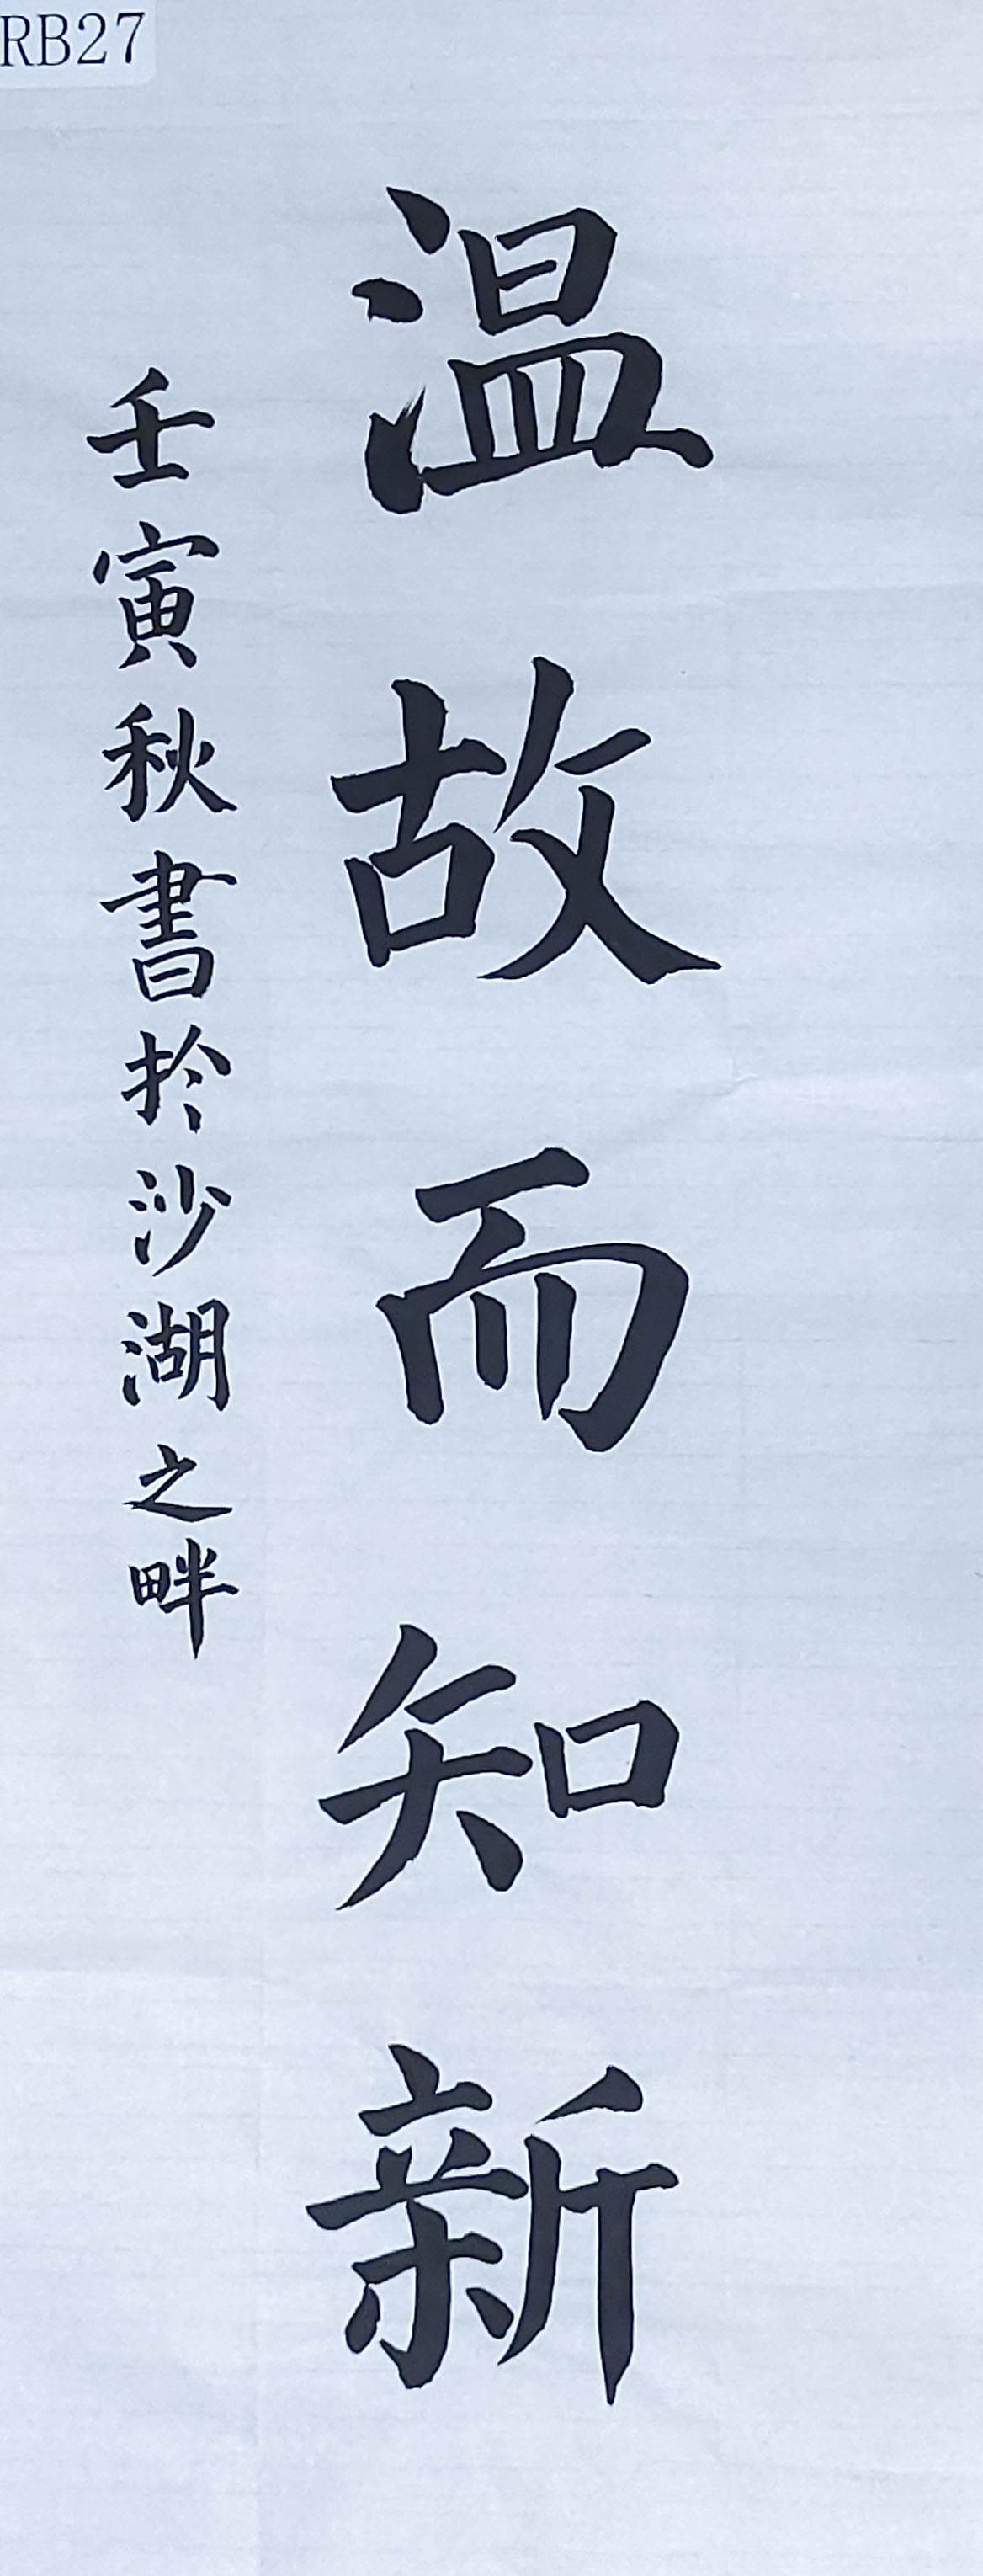 RB27
温故而知新
壬寅秋書於沙湖之畔